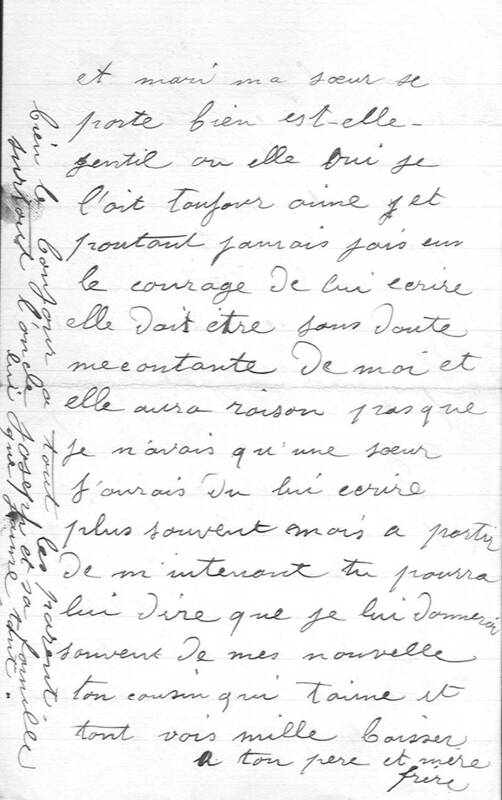 et mari ma sœur se
porte bien est-elle-
gentil ou elle Oui je
l'ait toujour aime et
pourtant jamais jois eux
le courage de lui ecrire
elle doit être sans doute
mecontante de moi et
elle aura raison pasque
je n'avais qu'une sœur
j'aurais du lui ecrire
plus souvent mois a partir
de m'intenant tu pourra
lui dire que je lui donnerois
souvent de mes nouvelle
ton cousin qui t'aime et
tont vois mille baisser
a ton pere et mère
frère
bien le bonjour a tout les parent
surtout l'oncle Joseph et sa famille
lui que j'aime tant.